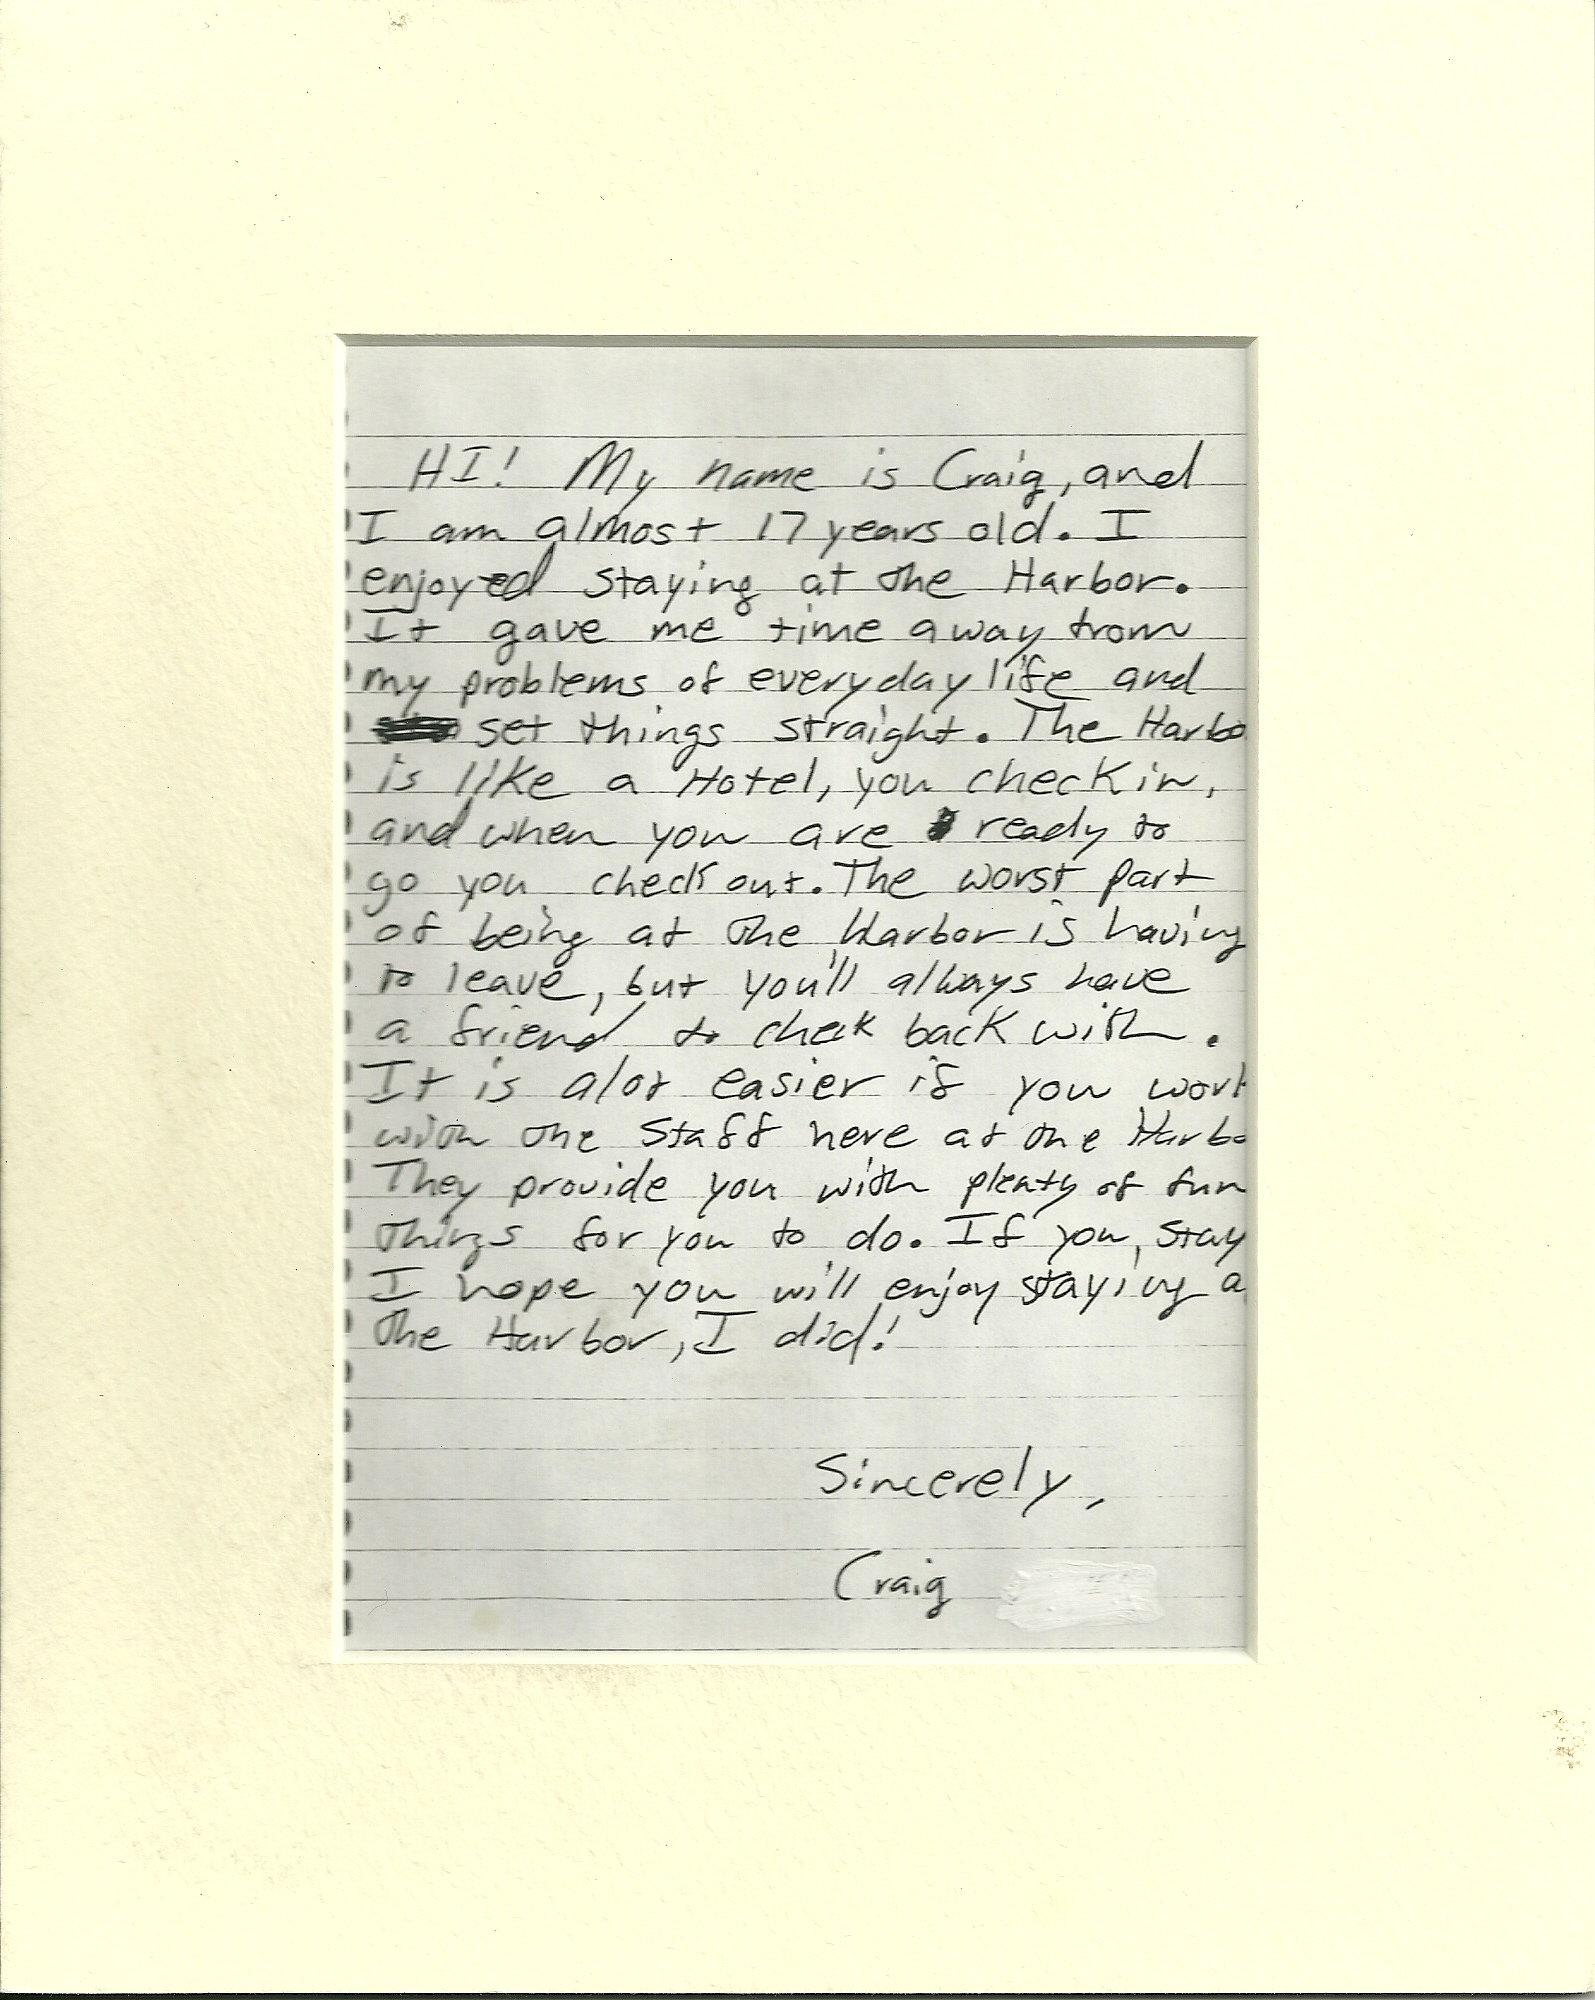 HI! My name is Craig, and
I am almost 17 years old. I
enjoyed staying at the Harbor.
It gave me time away from
my problems of everyday life and
set things straight. The Harbo
is like a Hotel, you check in,
and when you are ready to
go you check out. The worst part
of being at the Harbor is having
to leave, but you'll always have
a friend to check back with.
It is alot easier if you work
with the Staff here at the Harbo
They provide you with plenty of fun
things for you to do. If you stay
I hope you will enjoy staying a
the Harbor, I did!
Sincerely,
Craig